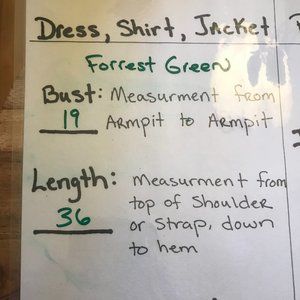 Dress, Shirt, Jacket
Forrest Green
Bust: Measurment from
19 Armpit to Armpit
Length: measurment from
36 top of Shoulder
or Strap, down
to hem